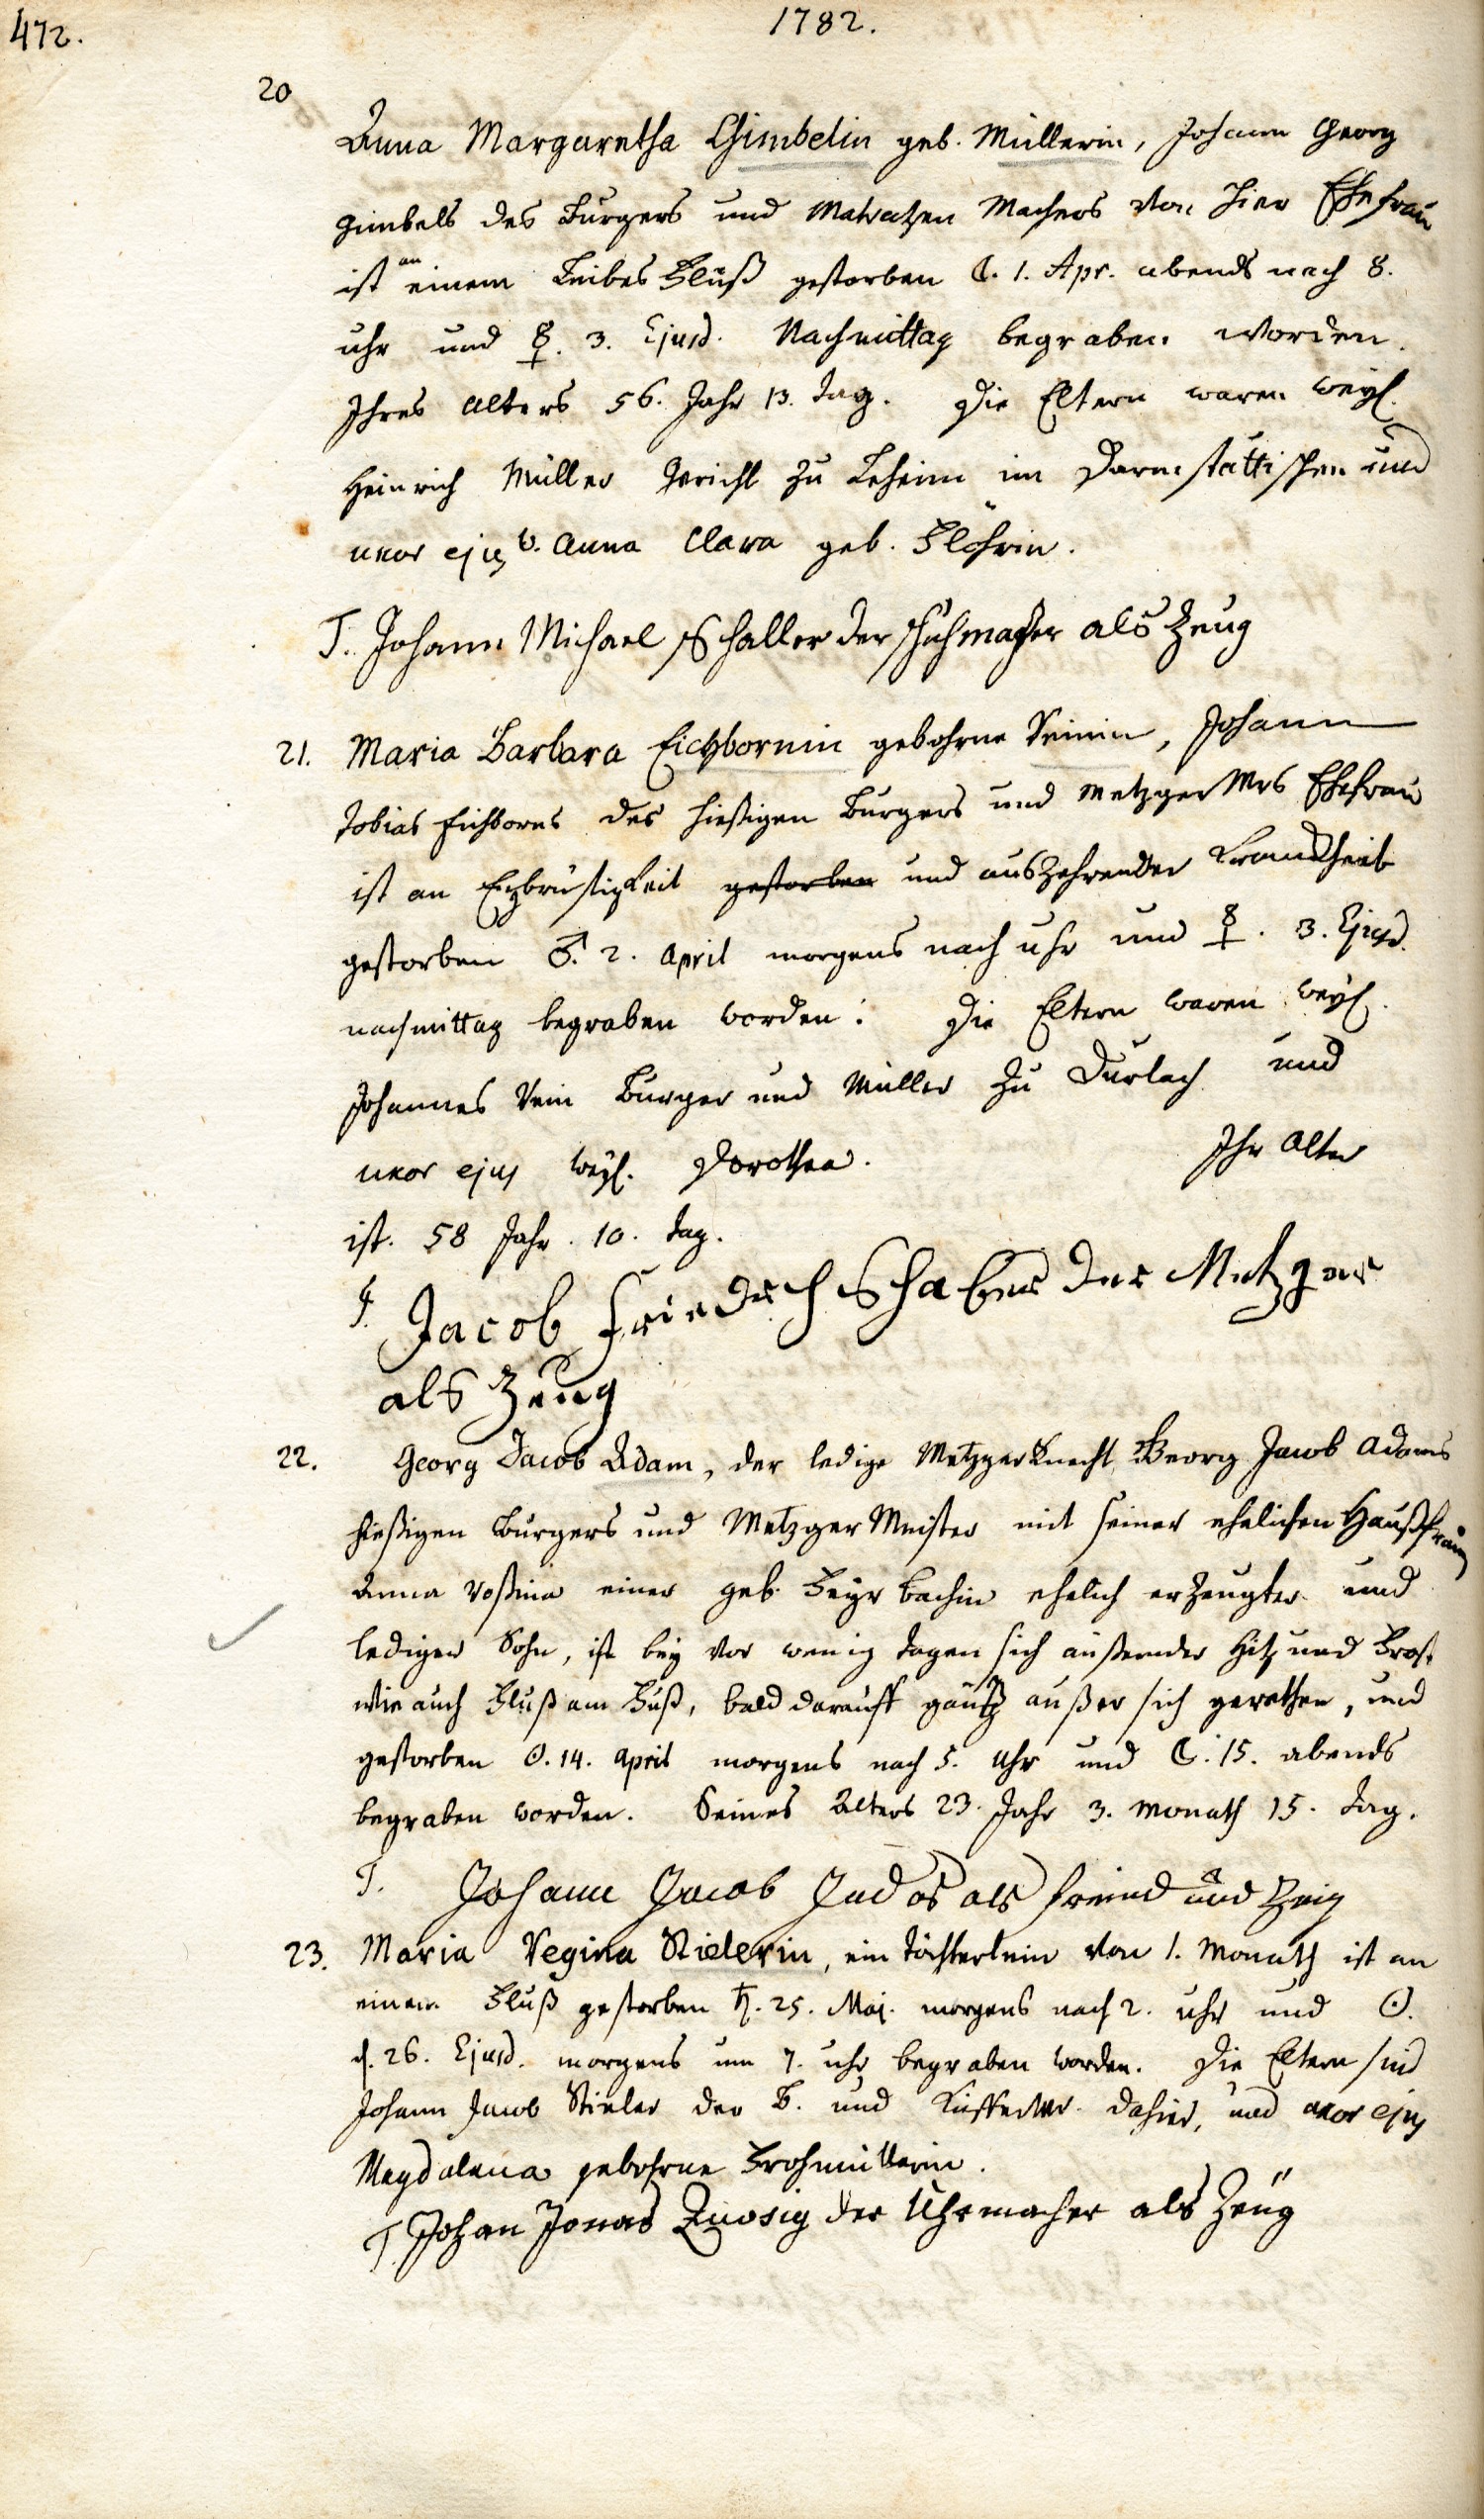 472.
1782.
20
Anna Margaretha Gimbelin geb. Müllerin, Johann Georg
Gimbels des Burgers und Matratzen Machers von hier Ehefrau
ist an einem Leibes Fluß gestorben ☾. 1. Apr. abends nach 8.
uhr und ☿. 3. Ejusd. Nachmittag begraben worden.
Ihres Alters 56. Jahr 13. Tag. Die Eltern waren weyl.
Heinrich Müller zu Leheim im Darmstättischen und
uxor ejus Anna Clara geb. Flöhrin.
T. Johann Michael Schaller der schuhmacher als Zeug
21. Maria Barbara Eichbornin gebohrne Veinin, Johann
Tobias Eichborns des hießigen Burgers und Metzger Mrs Ehefrau
ist an Engbrüstigkeit gestorben und auszehrender Krankheit
gestorben ♂. 2. April morgens nach uhr und ☿. 3. Ejusd.
nachmittag begraben worden: Die Eltern waren weyl.
Johannes Vein Burger und Müller zu Durlach und
uxor ejus weyl. Dorothea. Ihr Alter
ist. 58 Jahr. 10. Tag.
T. Jacob Friedrich Schaber der Metzger
als Zeug
22. Georg Jacob Adam, der ledige Metzgerknecht, Georg Jacob Adams
hießigen Burgers und Metzger Meister mit seiner ehelichen Haußfrau
Anna Rosina einer geb. Feyrbachin ehelich erzeugter und
lediger Sohn, ist bey vor wenig Tagen sich äußernder Hitz und Frost
wie auch Fluß am Fuß, bald darauff gäntz außer sich gerathen, und
gestorben ☉. 14. April morgens nach 5. Uhr und ☾. 15. abends
begraben worden. Seines Alters 23. Jahr 3. Monath 15. Tag.
T. Johann Jacob als freind und Zeig
23. Maria Regina Stielerin, ein Töchterlein von 1. Monath ist an
einem Fluß gestorben ♄. 25. Maj. morgens nach 2. uhr und ☉.
d. 26. Ejusd. morgens um 7. uhr begraben worden. Die Eltern sind
Johann Jacob Stieler der B. und Küffer Mr. dahier, und uxor ejus
Magdalena gebohrne Frohmüllerin.
T. Johan Jonas der Uhrmacher als Zeüg